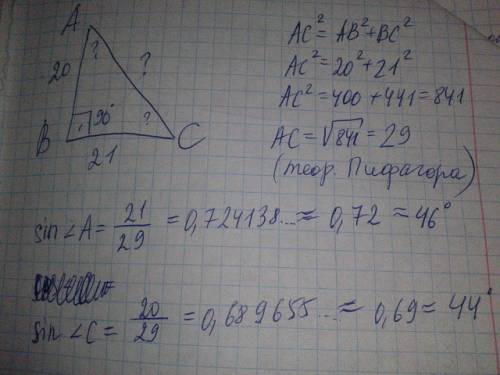 A
?
?
20
90°
?
B
C
21
AC² = AB² + BC²
AC² = 20² + 21²
AC² = 400 + 441 = 841
AC = √841 = 29
(теор. Пифагора)
sin∠A = 21/29 = 0,724138... ≈ 0,72 ≈ 46°
sin∠C = 20/29 = 0,689655... ≈ 0,69 = 44°